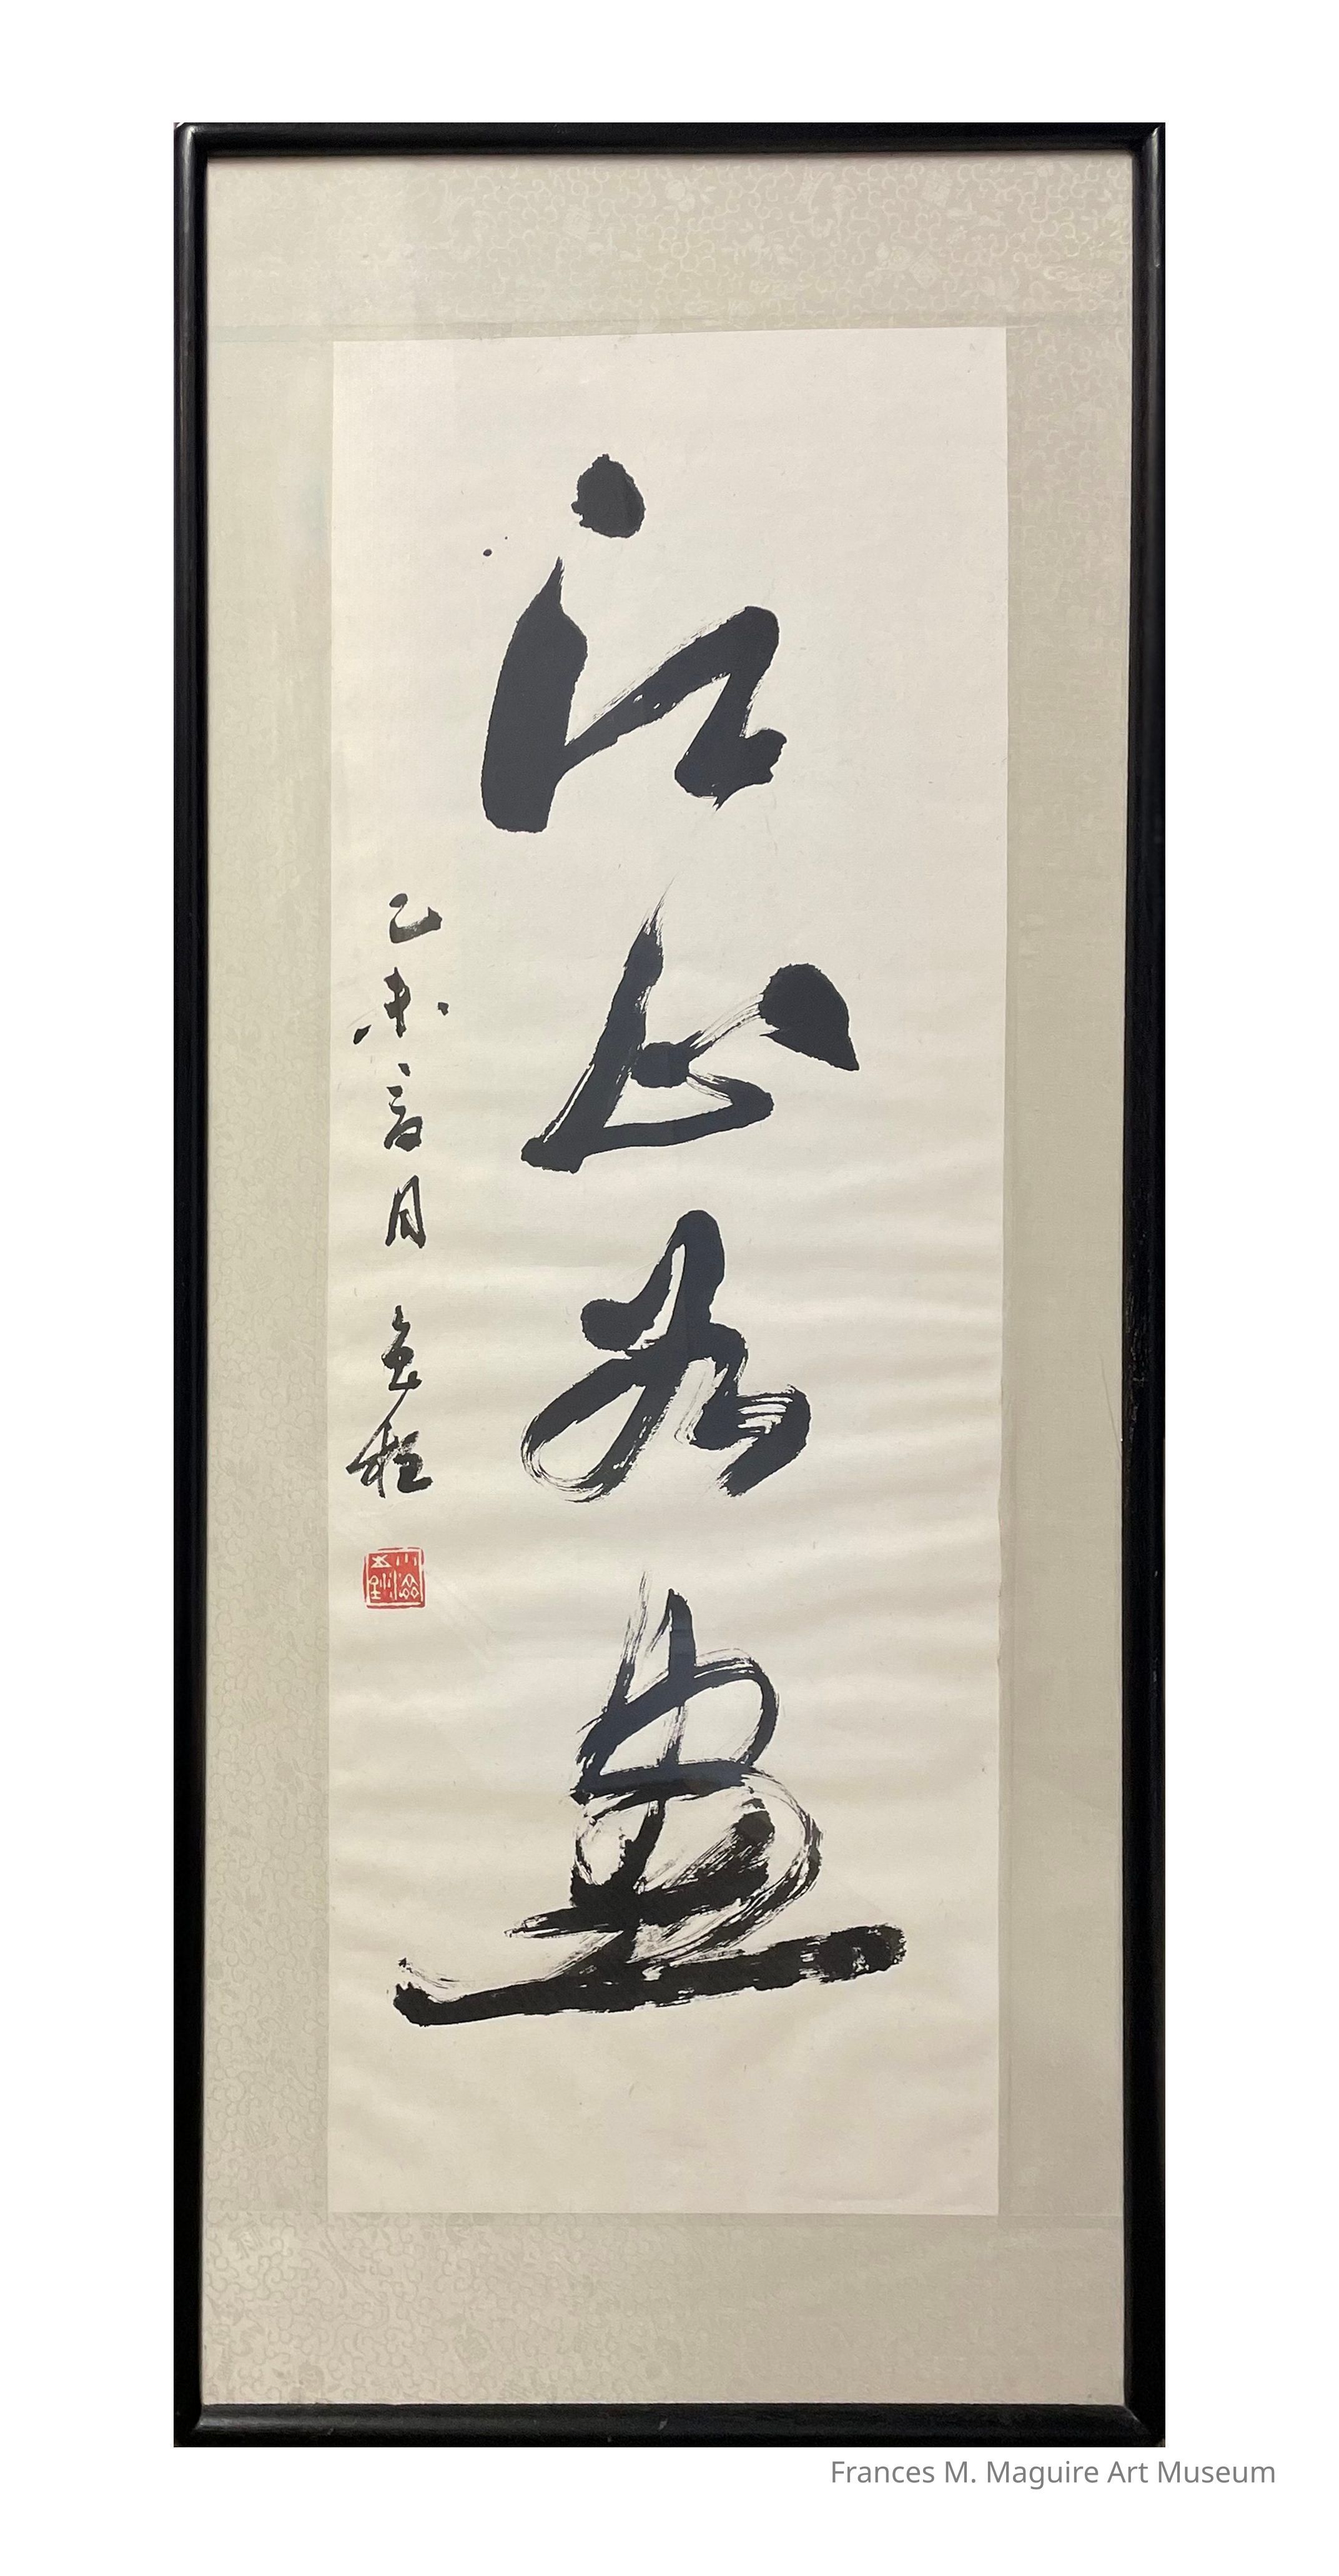 江山如画
乙未夏月
Frances M. Maguire Art Museum